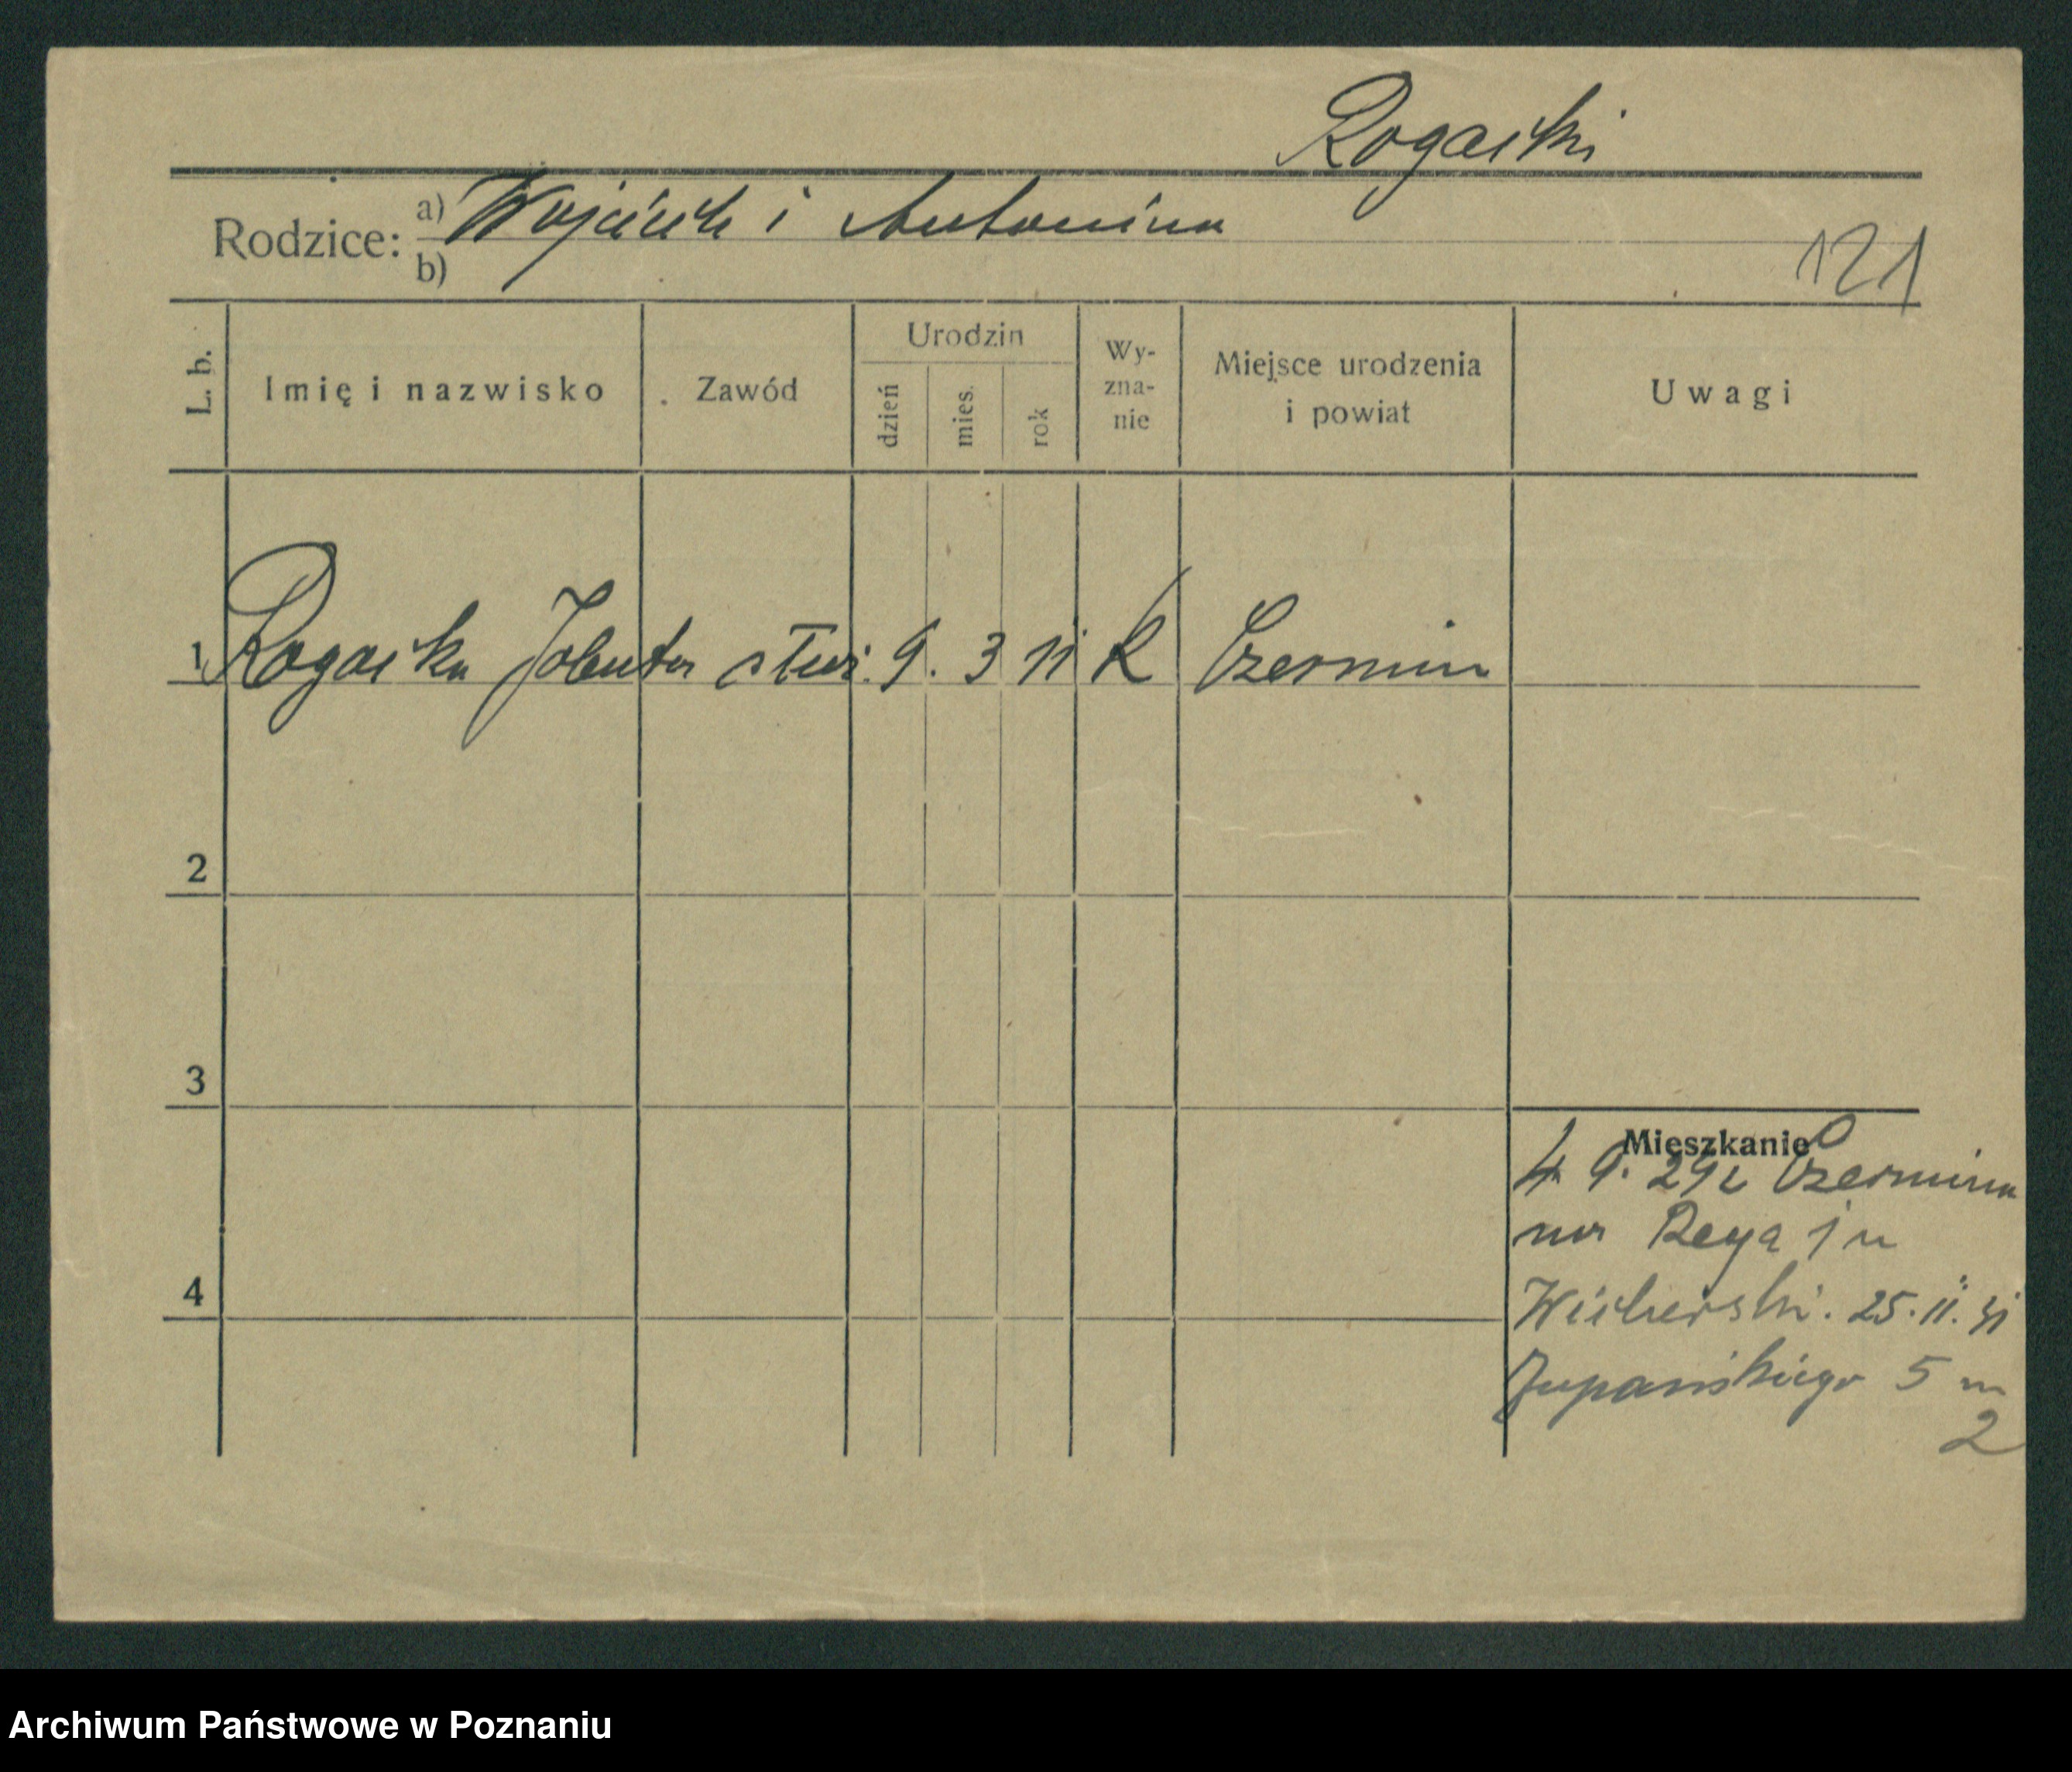 Rogacki
Rodzice: a) Wojciech i Antonina
b)
121
L. b.
Imię i nazwisko
Zawód
Urodzin
dzień
mies.
rok
Wy-
zna-
nie
Miejsce urodzenia
i powiat
Uwagi
1 Rogacka Jolenta służ. 9. 3 11 K Czermin
2
3
4
Mieszkanie
4. 9. 29 z Czermina
na Reya 1 u
Wicherski. 25.11.31
Żupańskiego 5 m
2
Archiwum Państwowe w Poznaniu